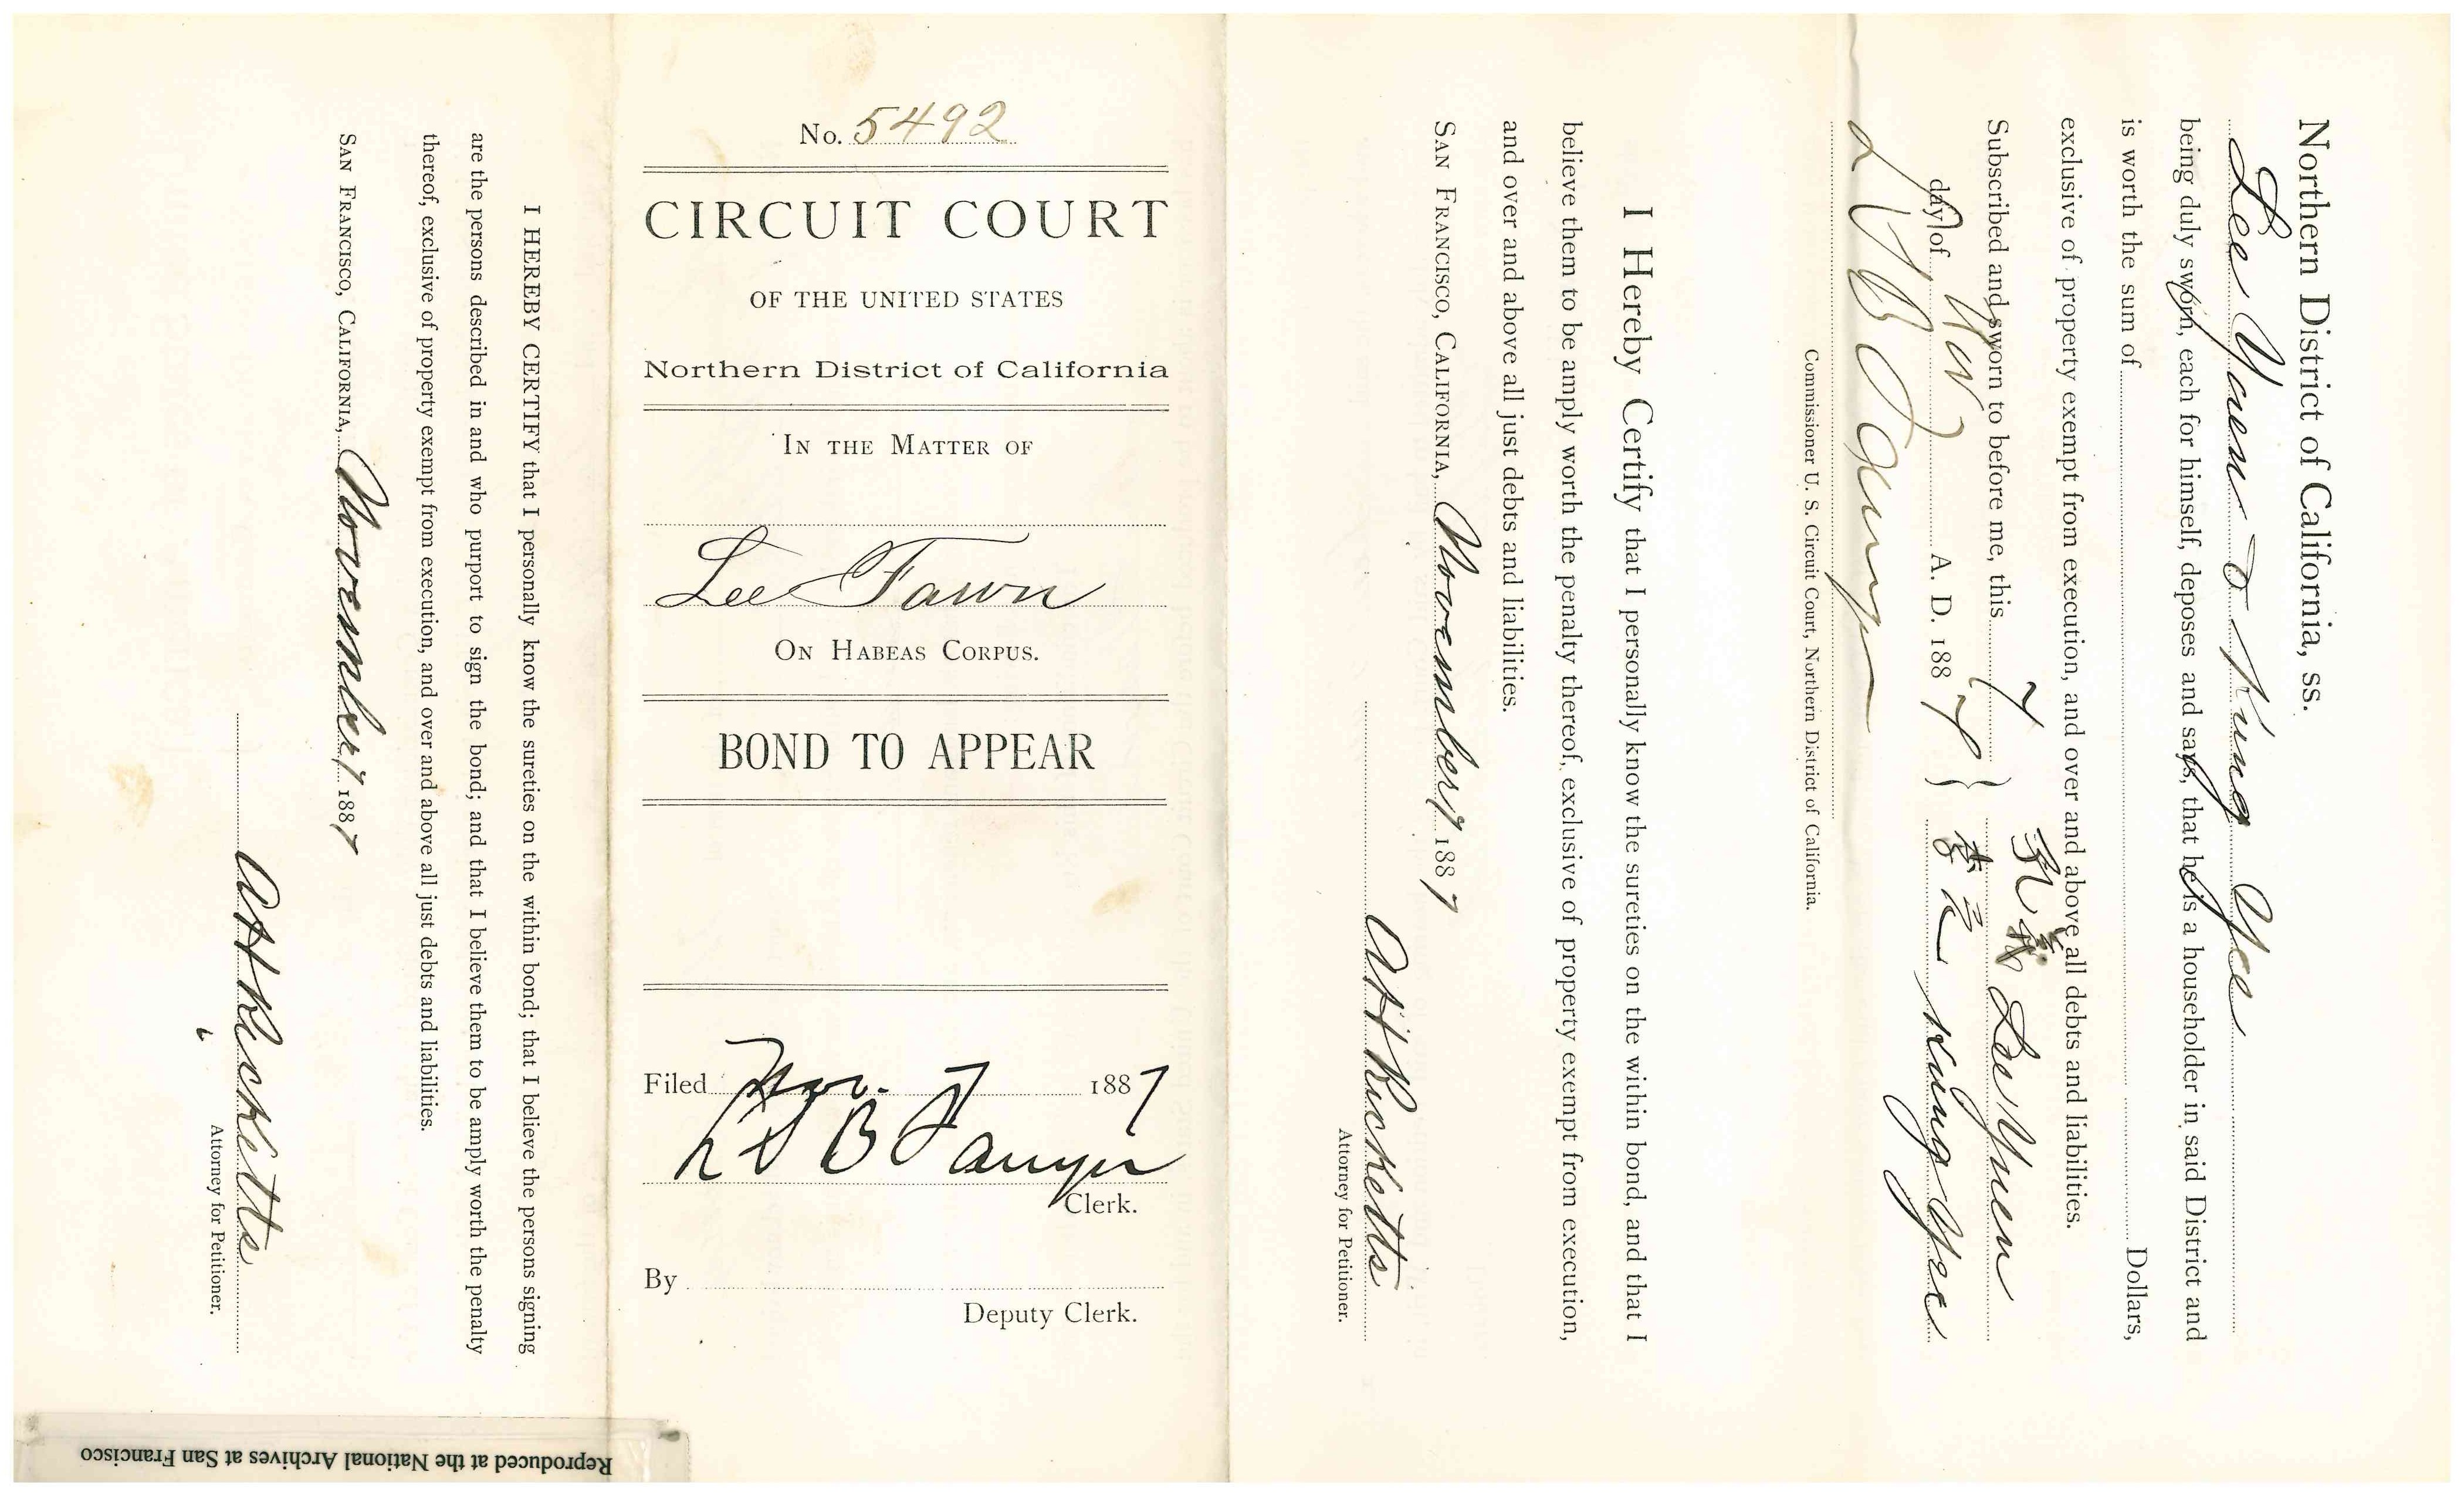 Northern District of California, ss.
Lee Yuen & Kung Yee
being duly sworn, each for himself, deposes and says, that he is a householder in said District and
is worth the sum of Dollars,
exclusive of property exempt from execution, and over and above all debts and liabilities.
Subscribed and sworn to before me, this 7
day of Nov A. D. 1887
Lee Yuen
Kung Yee
L S B Sawyer
Commissioner U. S. Circuit Court, Northern District of California.
I Hereby Certify that I personally know the sureties on the within bond, and that I
believe them to be amply worth the penalty thereof, exclusive of property exempt from execution,
and over and above all just debts and liabilities.
SAN FRANCISCO, CALIFORNIA, November 7 1887
A H Ricketts
Attorney for Petitioner.
No. 5492
CIRCUIT COURT
OF THE UNITED STATES
Northern District of California
IN THE MATTER OF
Lee Fawn
ON HABEAS CORPUS.
BOND TO APPEAR
Filed Nov. 7 1887
L S B Sawyer
Clerk.
By
Deputy Clerk.
I HEREBY CERTIFY that I personally know the sureties on the within bond; that I believe the persons signing
are the persons described in and who purport to sign the bond; and that I believe them to be amply worth the penalty
thereof, exclusive of property exempt from execution, and over and above all just debts and liabilities.
SAN FRANCISCO, CALIFORNIA, November 7 1887
A H Ricketts
Attorney for Petitioner.
Reproduced at the National Archives at San Francisco